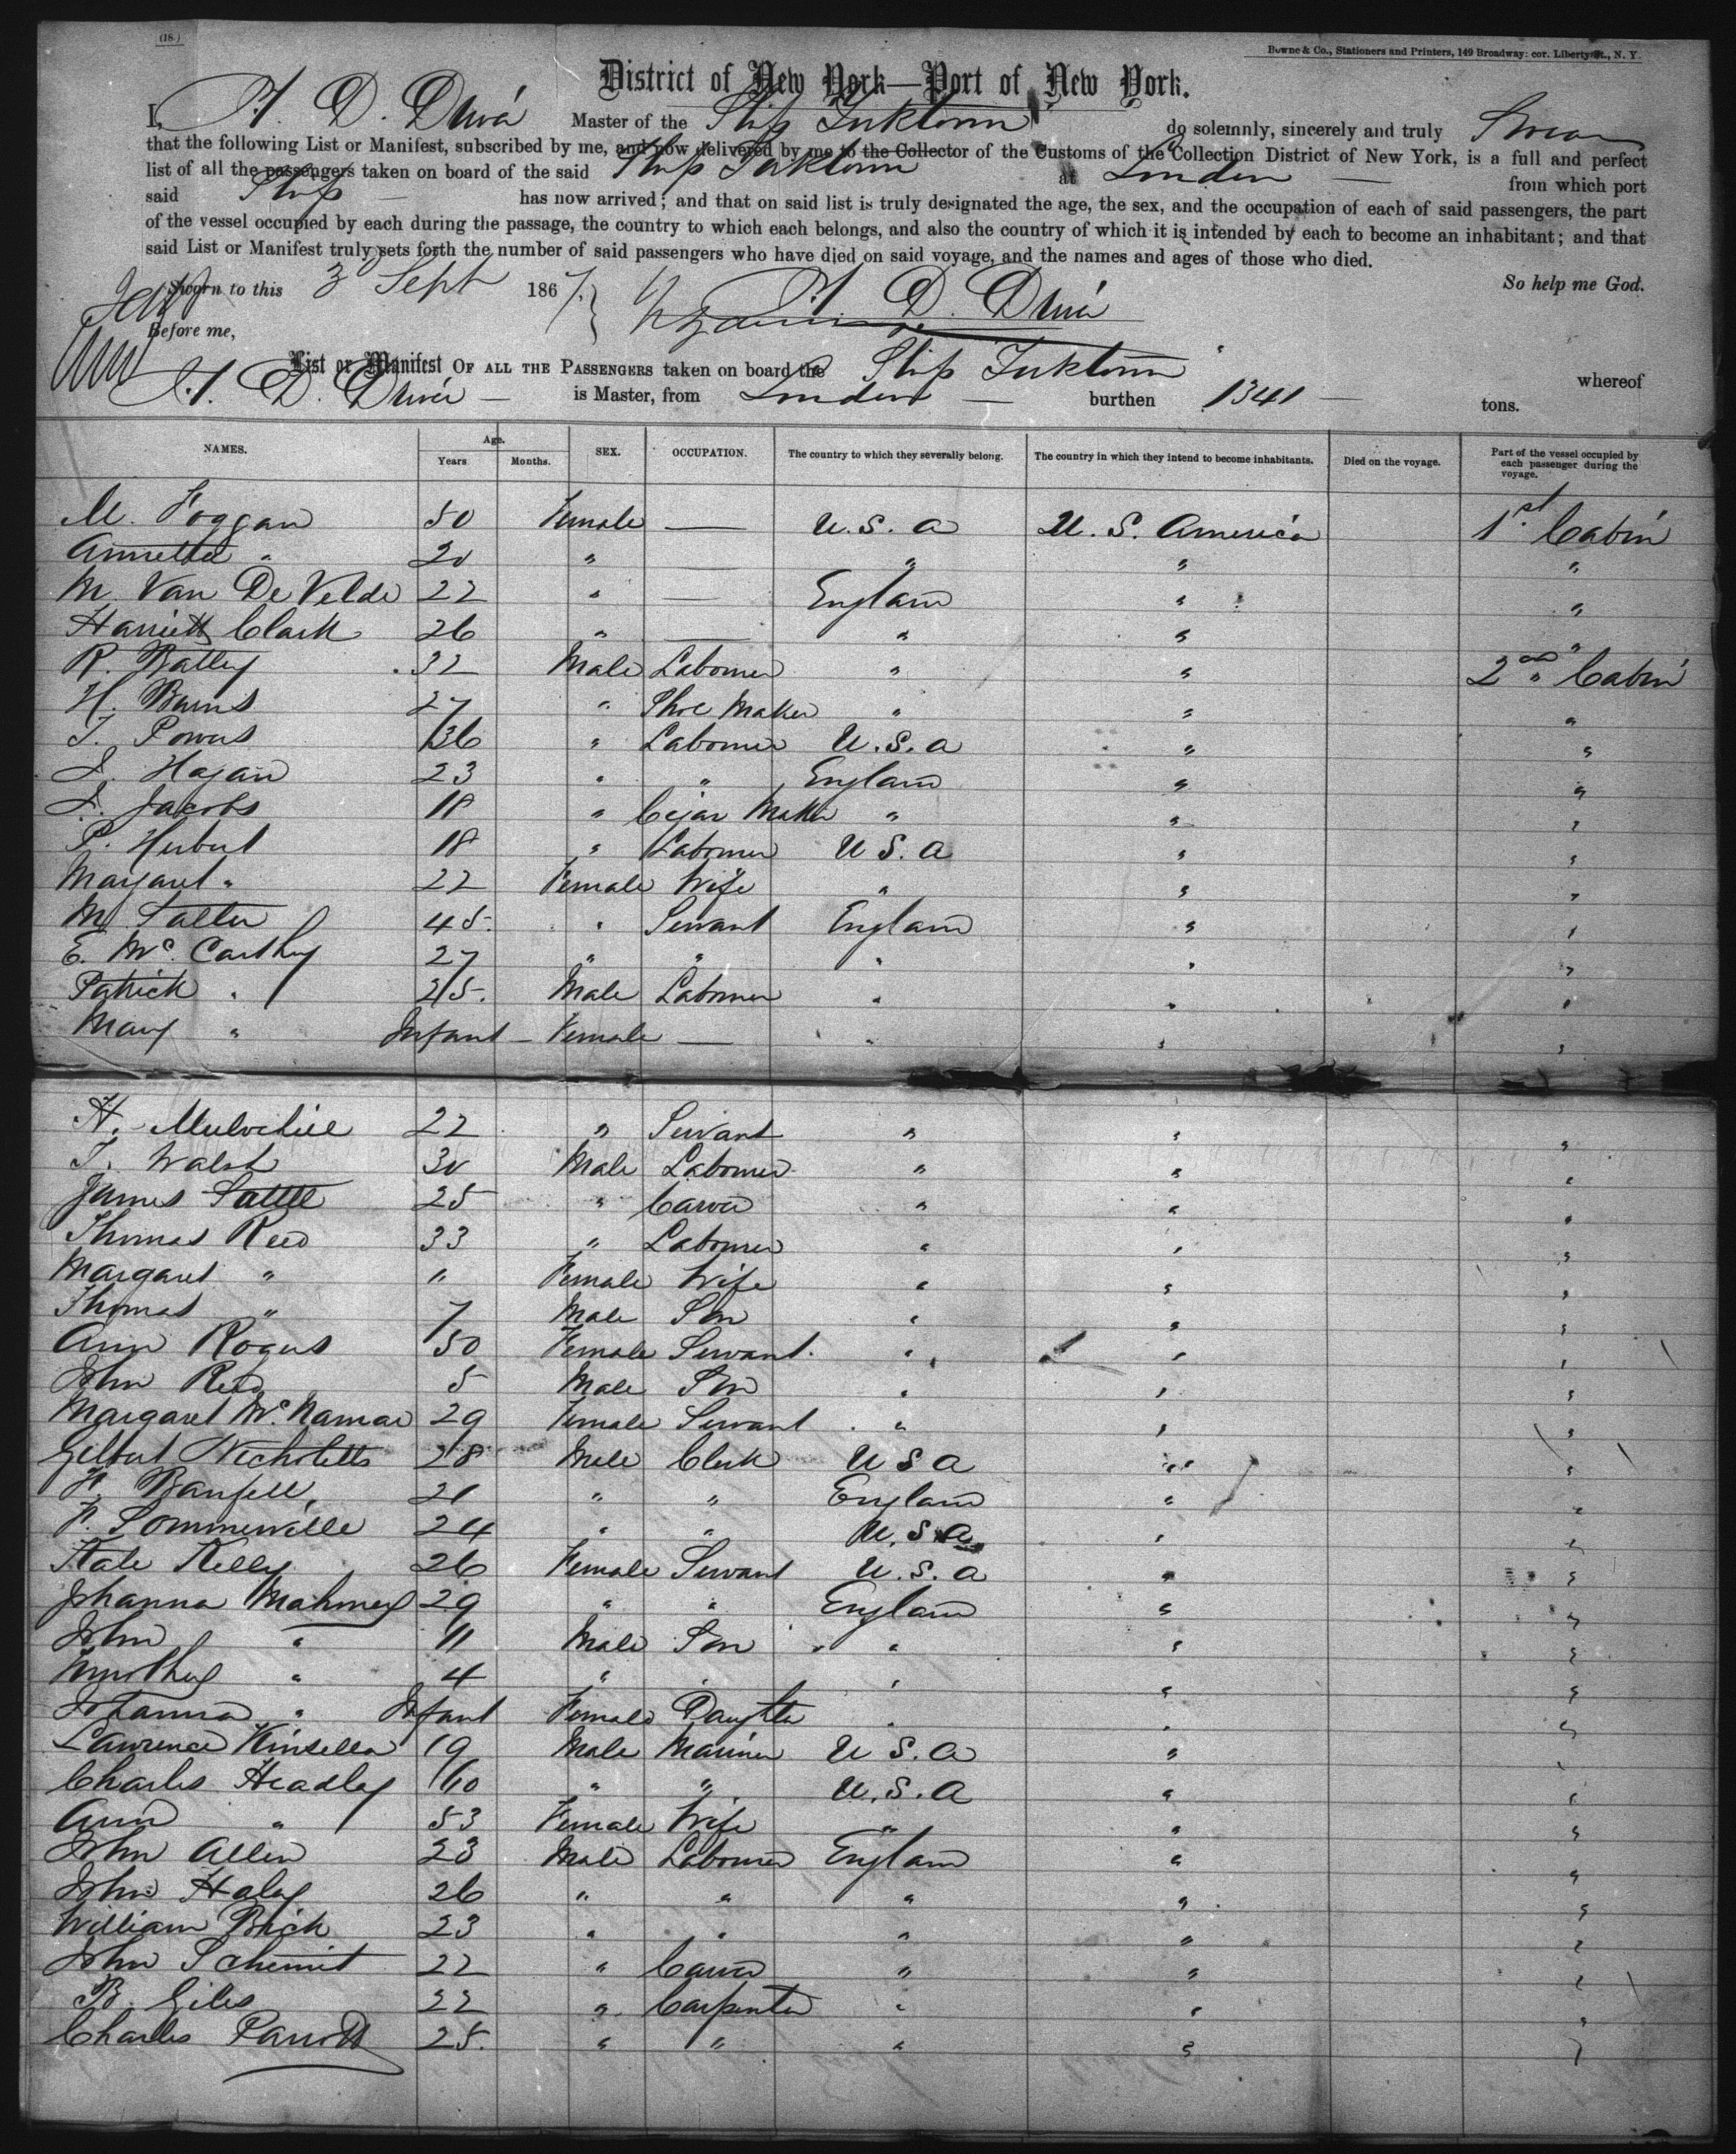 (18)
Bowne & Co., Stationers and Printers, 149 Broadway: cor. Liberty St., N. Y.
District of New York—Port of New York.
I, D. Master of the Ship do solemnly, sincerely and truly Swear
that the following List or Manifest, subscribed by me, and now delivered by me to the Collector of the Customs of the Collection District of New York, is a full and perfect
list of all the passengers taken on board of the said Ship at London — from which port
said Ship — has now arrived; and that on said list is truly designated the age, the sex, and the occupation of each of said passengers, the part
of the vessel occupied by each during the passage, the country to which each belongs, and also the country of which it is intended by each to become an inhabitant; and that
said List or Manifest truly sets forth the number of said passengers who have died on said voyage, and the names and ages of those who died.
So help me God.
Sworn to this 3d Sept 1867
D.
Before me,
List or Manifest OF ALL THE PASSENGERS taken on board the Ship whereof
D. — is Master, from London — burthen 1341 — tons.
NAMES. Age. Years Months. SEX. OCCUPATION. The country to which they severally belong. The country in which they intend to become inhabitants. Died on the voyage. Part of the vessel occupied by each passenger during the voyage.
M. Foggan 50 Female — U.S.A U.S. America 1st Cabin
Annetta " 20 " — " " "
M. Van De Velde 22 " — England " "
Harriett Clark 26 " — " " "
R. Batley 32 Male Labourer " " 2nd " Cabin
H. Burns 27 " Shoe Maker " " "
T. Powers 36 " Labourer U.S.A " "
J. Hagan 23 " " England " "
J. Jacobs 18 " Cigar Maker " " "
P. Herbert 18 " Labourer U S.A " "
Margaret " 22 Female Wife " " "
M. 45. " Servant England " "
E. McCarthy 27 " " " " "
Patrick " 25. Male Labourer " " "
Mary " Infant — Female — " " "
H. 22 " Servant " " "
T. Walsh 30 Male Labourer " " "
James 25 " Carver " " "
Thomas Reed 33 " Labourer " " "
Margaret " " Female Wife " " "
Thomas " 7 Male Son " " "
Ann Rogers 50 Female Servant " " "
John Reed 5 Male Son " " "
Margaret McNamar 29 Female Servant " " "
Gilbert Nicholetts 28 Male Clerk U S A " "
F. Banfell 21 " " England " "
F. Sommerville 24 " " U.S.A " "
Kate Kelly 26 Female Servant U.S.A " "
Johanna Mahoney 29 " " England " "
John " 11 Male Son " " "
Timothy " 4 " " " " "
Johanna " Infant Female Daughter " " "
Lawrence Kinsella 19 Male Mariner U S.A " "
Charles Headley 60 " " U.S.A " "
Ann " 53 Female Wife " " "
John Allen 23 Male Labourer England " "
John Haley 26 " " " " "
William Brick 23 " " " " "
John Schemit 22 " Carver " " "
B. Giles 22 " Carpenter " " "
Charles Parrott 25. " " " " "